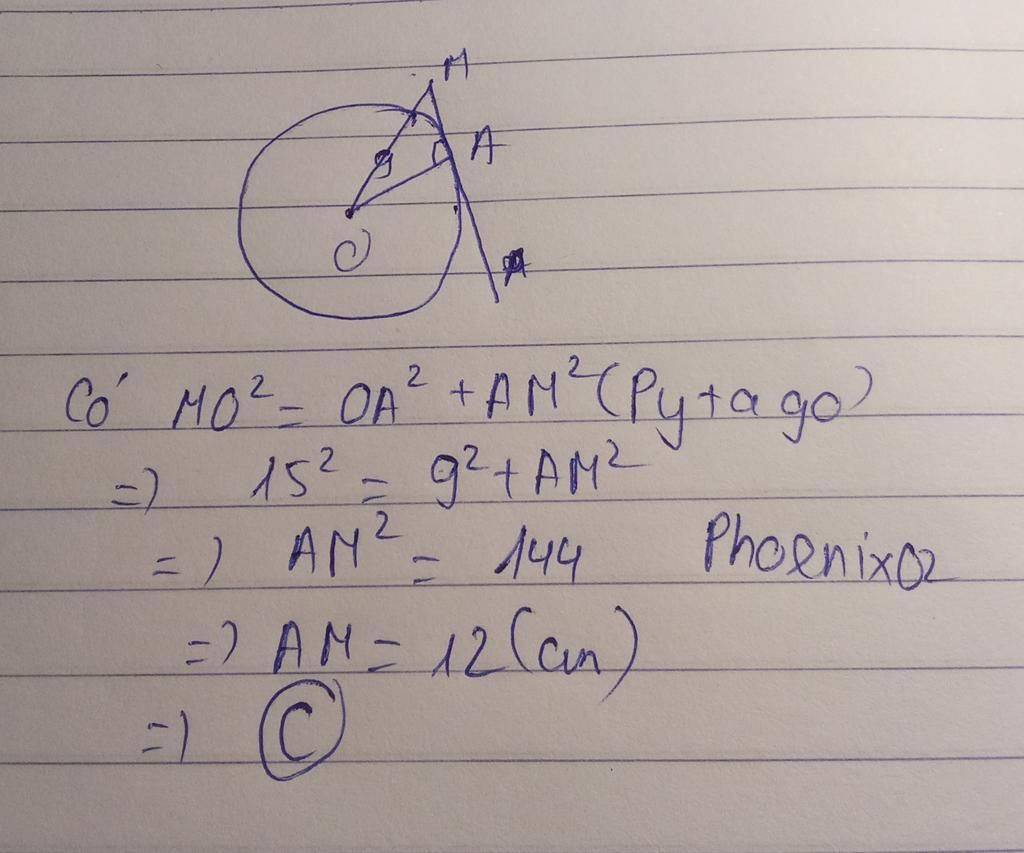 M
9
A
O
Có MO² = OA² + AM² (Pytago)
=) 15² = 9² + AM²
=) AM² = 144 Phoenix02
=) AM = 12 (cm)
=) C